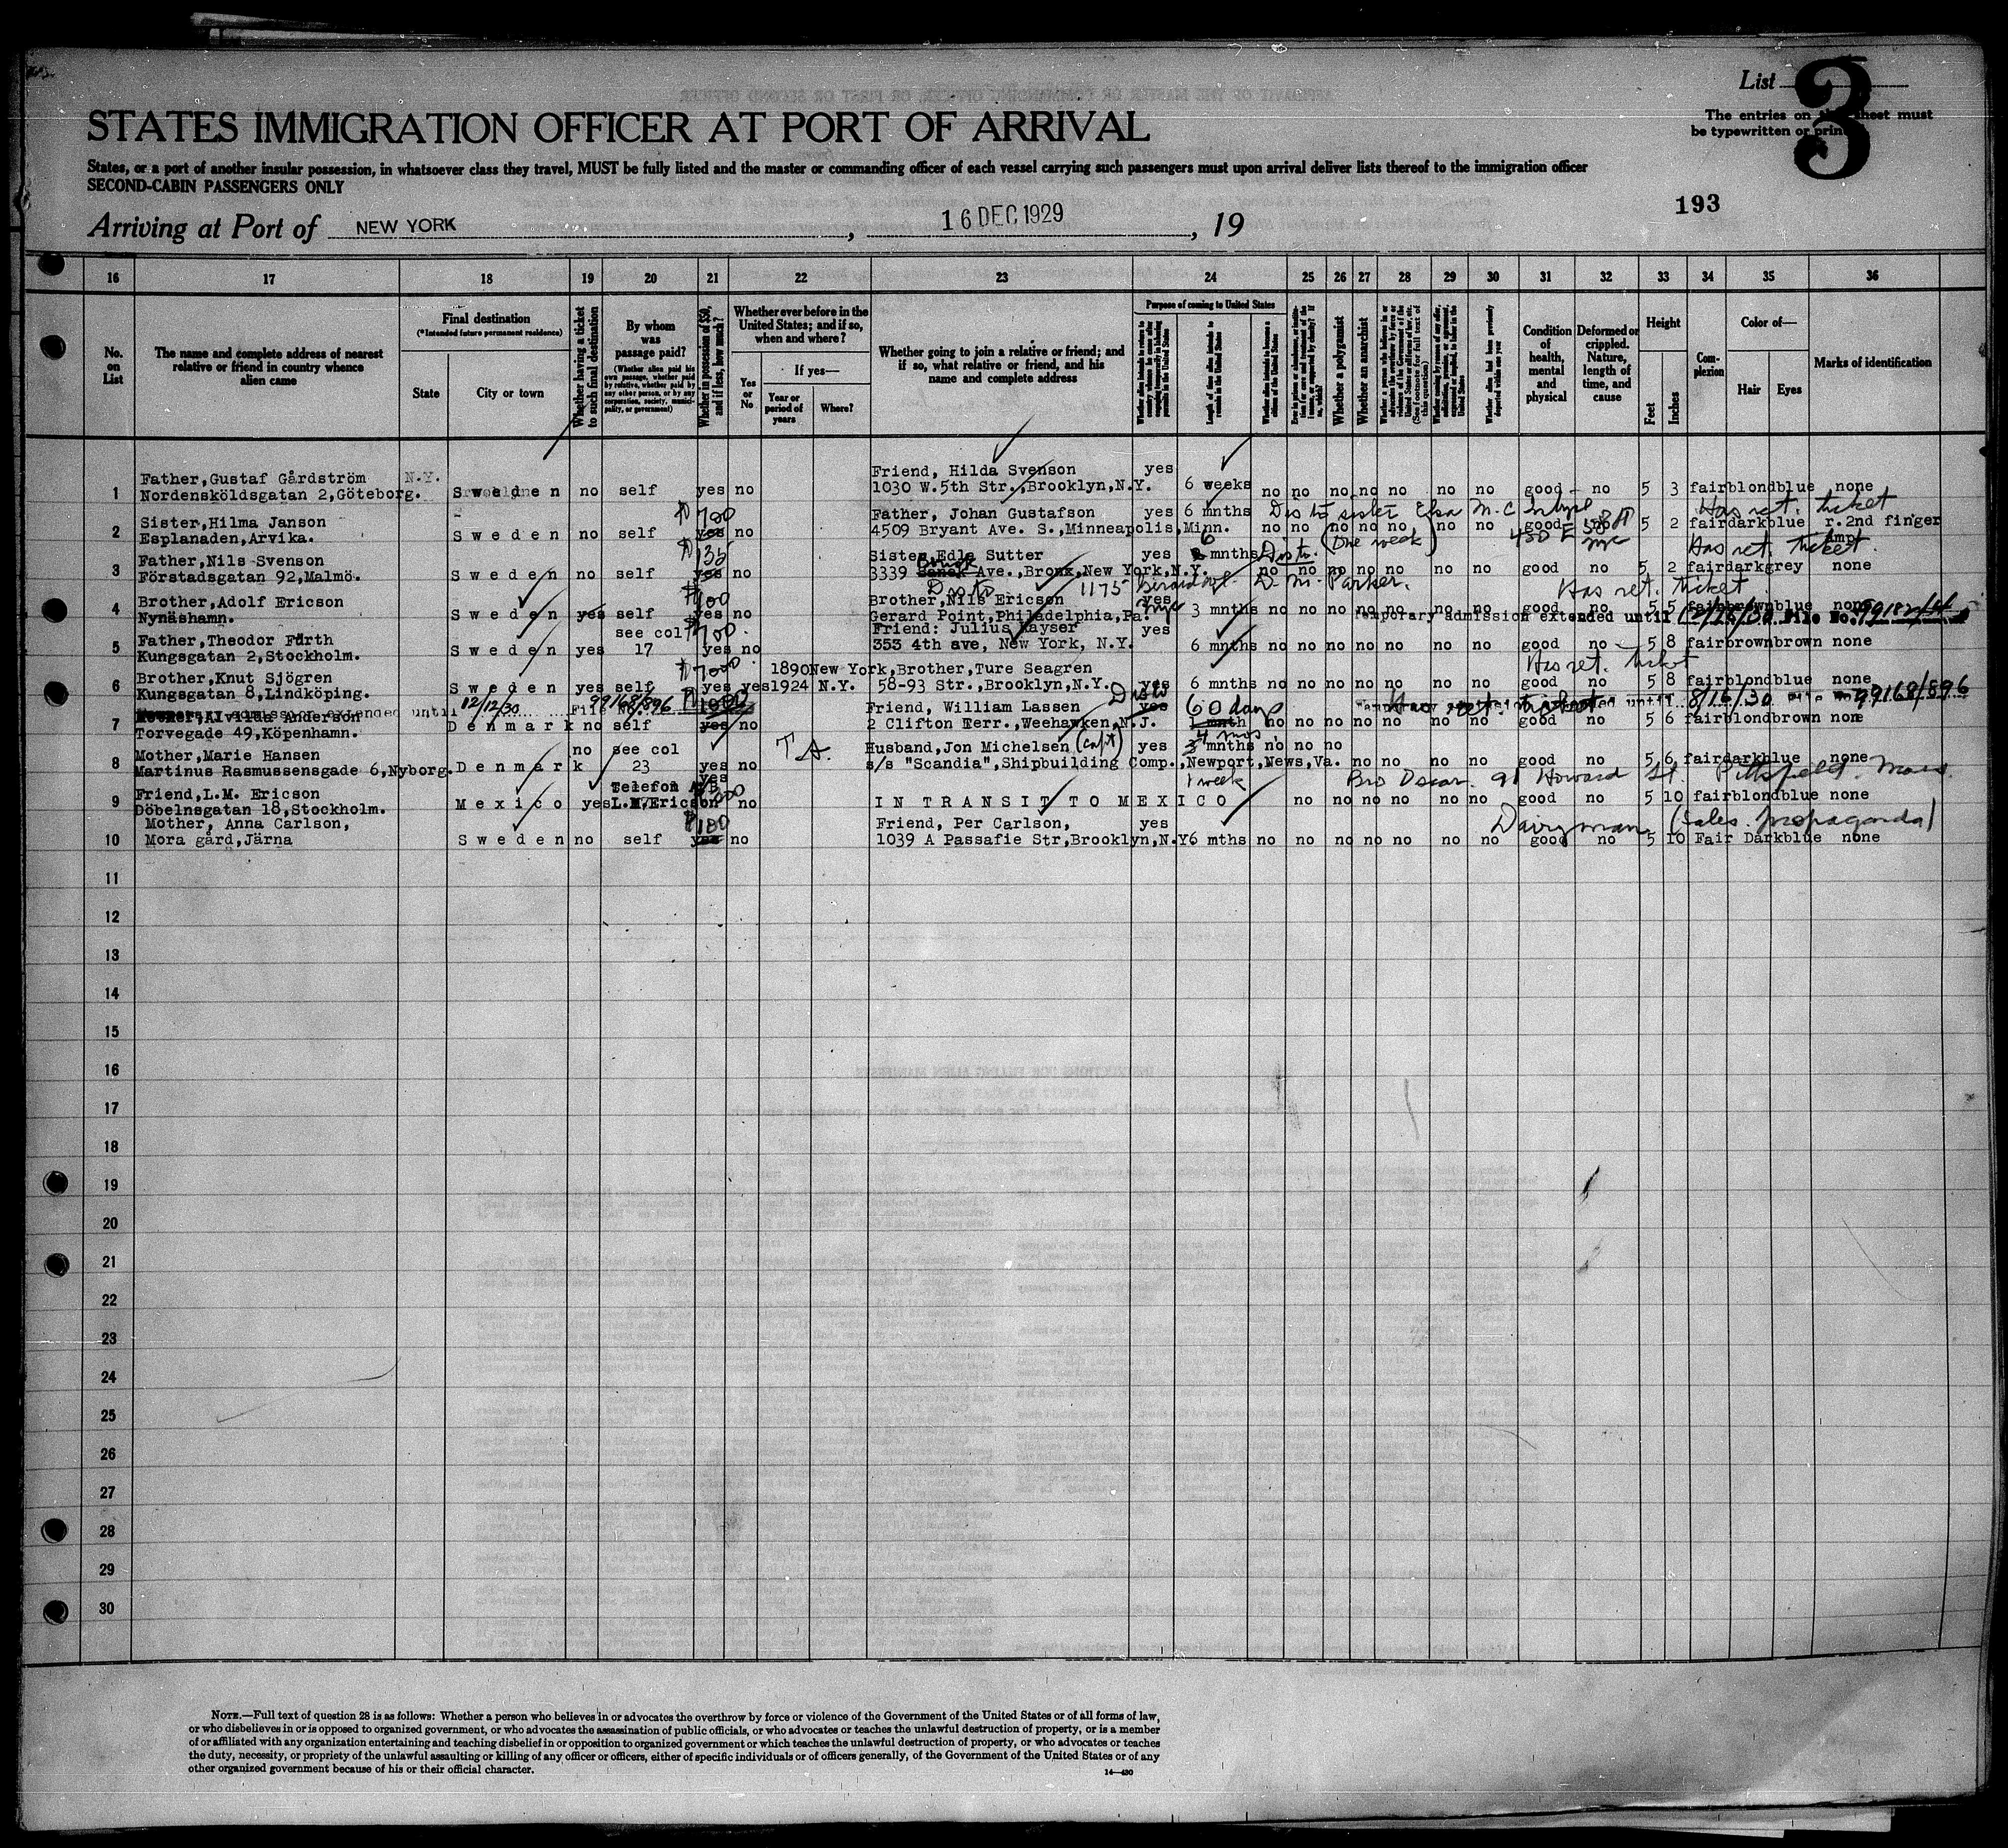 List 3
The entries on this sheet must
be typewritten or printed
STATES IMMIGRATION OFFICER AT PORT OF ARRIVAL
States, or a port of another insular possession, in whatsoever class they travel, MUST be fully listed and the master or commanding officer of each vessel carrying such passengers must upon arrival deliver lists thereof to the immigration officer
SECOND-CABIN PASSENGERS ONLY
193
Arriving at Port of NEW YORK, 16 DEC 1929, 19
16 17 18 19 20 21 22 23 24 25 26 27 28 29 30 31 32 33 34 35 36
No. on List
The name and complete address of nearest relative or friend in country whence alien came
Final destination
(*Intended future permanent residence)
State
City or town
Whether having a ticket to such final destination
By whom was passage paid?
(Whether alien paid his own passage, whether paid by relative, whether paid by any other person, or by any corporation, society, municipality, or government)
Whether in possession of $50, and if less, how much?
Whether ever before in the United States; and if so, when and where?
Yes or No
If yes—
Year or period of years
Where?
Whether going to join a relative or friend; and if so, what relative or friend, and his name and complete address
Purpose of coming to United States
Length of time alien intends to remain in the United States
Whether a polygamist
Whether an anarchist
Condition of health, mental and physical
Deformed or crippled. Nature, length of time, and cause
Height
Feet
Inches
Complexion
Color of—
Hair
Eyes
Marks of identification
Father,Gustaf Gårdström N.Y. Friend, Hilda Svenson yes
1 Nordensköldsgatan 2,Göteborg. Sweden no self yes no 1030 W.5th Str.,Brooklyn,N.Y. 6 weeks no no no no no no no good no 5 3 fair blond blue none
Has ret. ticket
Sister,Hilma Janson $700 Father, Johan Gustafson yes 6 mnths
2 Esplanaden,Arvika. Sweden no self yes no 4509 Bryant Ave. S.,Minneapolis,Minn. no no no no no no no good no 5 2 fair dark blue r.2nd finger
(One week) Has ret. ticket
Father,Nils Svenson $135 Sister,Edla Sutter yes 6 mnths
3 Förstadsgatan 92,Malmö. Sweden no self yes no 3339 Ave.,Bronx,New York,N.Y. no no no no no no no good no 5 2 fair dark grey none
1175 D. M. Parker. Has ret. ticket
Brother,Adolf Ericson $100 Brother,Nils Ericson yes
4 Nynäshamn. Sweden yes self yes no Gerard Point,Philadelphia,Pa. 3 mnths no no no no no no no good no 5 5 fair brown blue none
Temporary admission extended until 12/16/30 File No.
Father,Theodor Fürth see col $700. Friend: Julius Kayser yes
5 Kungsgatan 2,Stockholm. Sweden yes 17 yes no 353 4th ave, New York, N.Y. 6 mnths no no no no no no no good no 5 8 fair brown brown none
Has ret. ticket
Brother,Knut Sjögren 1890 New York, Brother,Ture Seagren
6 Kungsgatan 8,Lindköping. Sweden yes self yes yes 1924 N.Y. 58-93 Str.,Brooklyn,N.Y. yes 6 mnths no no no no no no no good no 5 8 fair blond blue none
admission extended until 12/12/30 File No. 99168/896
Has ret. ticket until 8/16/30 99168/896
Alvilda Anderson Friend, William Lassen yes 60 days
7 Torvegade 49,Köpenhamn. Denmark no self yes no 2 Clifton Terr.,Weehawken,N.J. 1 mnth no no no no no no no good no 5 6 fair blond brown none
Mother,Marie Hansen no see col T.A. Husband,Jon Michelsen (Capt) yes 3 mnths no no no 4 mos.
8 Martinus Rasmussensgade 6,Nyborg. Denmark 23 yes no s/s "Scandia",Shipbuilding Comp.,Newport,News,Va. no no no no good no 5 6 fair dark blue none
Friend,L.M. Ericson Telefon A/B yes 1 week Bro Oscar 91 Howard St. Pittsfield. Mass.
9 Döbelnsgatan 18,Stockholm. Mexico yes L.M.Ericson no IN TRANSIT TO MEXICO no no no no no no good no 5 10 fair blond blue none
Mother, Anna Carlson, $180 Friend, Per Carlson, yes Dairyman (Sales propaganda)
10 Mora gård,Järna Sweden no self yes no 1039 A Passafie Str,Brooklyn,N.Y 6 mths no no no no no no no good no 5 10 Fair Dark blue none
11
12
13
14
15
16
17
18
19
20
21
22
23
24
25
26
27
28
29
30
NOTE.—Full text of question 28 is as follows: Whether a person who believes in or advocates the overthrow by force or violence of the Government of the United States or of all forms of law,
or who disbelieves in or is opposed to organized government, or who advocates the assassination of public officials, or who advocates or teaches the unlawful destruction of property, or is a member
of or affiliated with any organization entertaining and teaching disbelief in or opposition to organized government or which teaches the unlawful destruction of property, or who advocates or teaches
the duty, necessity, or propriety of the unlawful assaulting or killing of any officer or officers, either of specific individuals or of officers generally, of the Government of the United States or of any
other organized government because of his or their official character.
14—430